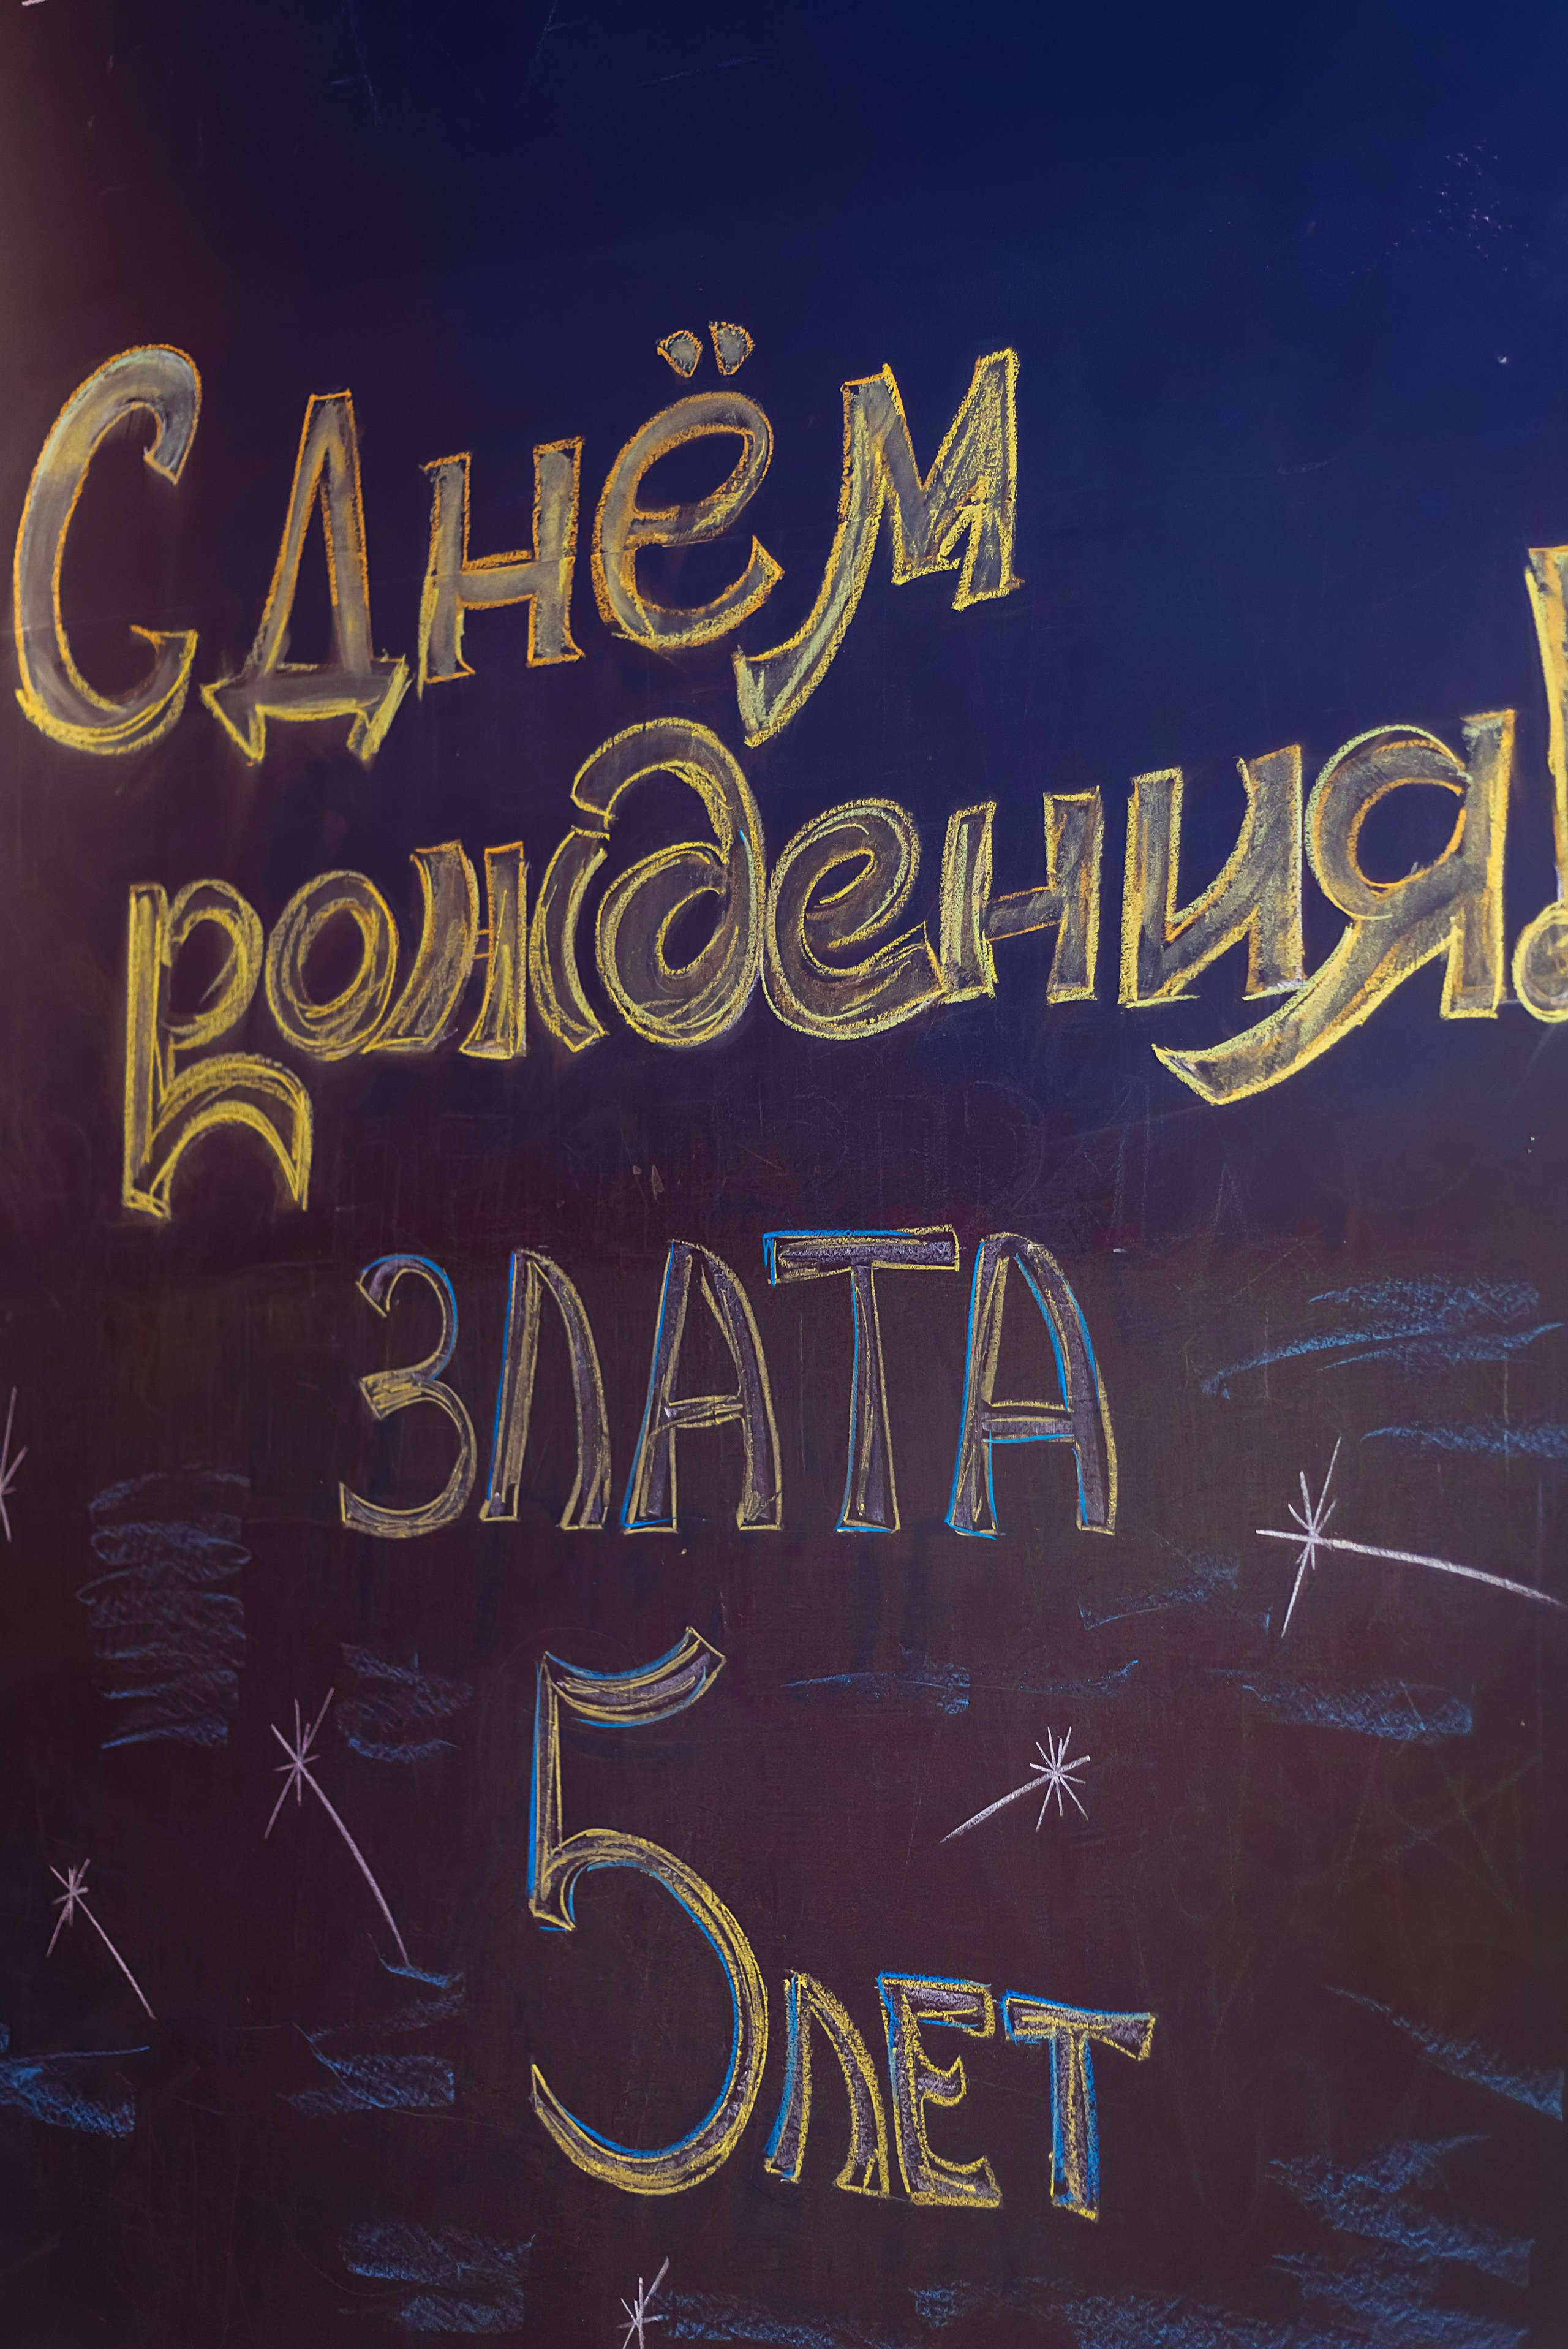 С Днём
рождения!
ЗЛАТА
5 ЛЕТ